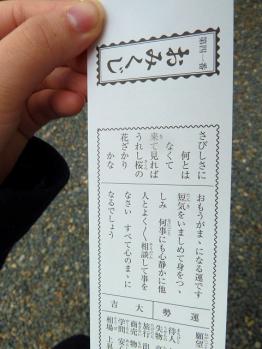 第四一番
おみくじ
さびしさに
何とは
なくて
来て見れば
うれし桜の
花ざかり
かな
おもうがまゝになる運です
短気をいましめて身をつゝ
しみ 何事にも心静かに他
人とよく〱相談して事を
なさい すべて心のまゝに
なるでしょう
運勢 大吉
願望
待人
失物
旅行
商売
学問
相場